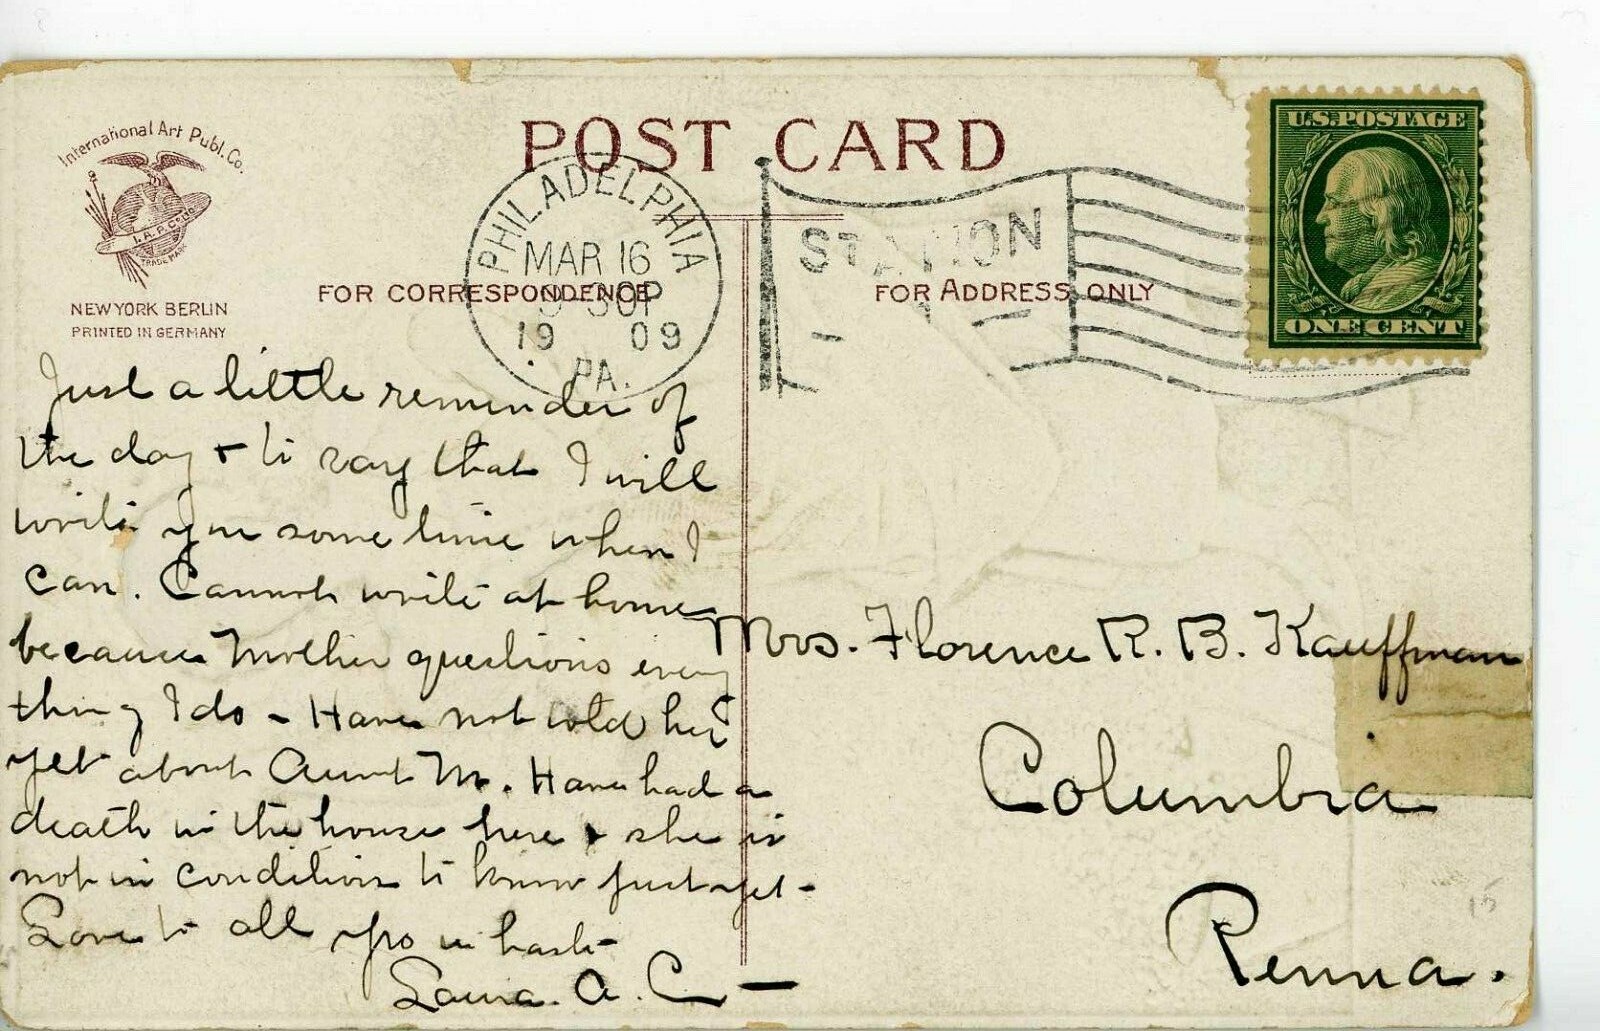 International Art Publ. Co.
I.A.P. Co. Ltd.
TRADE MARK
NEW YORK BERLIN
PRINTED IN GERMANY
POST CARD
FOR CORRESPONDENCE
FOR ADDRESS ONLY
PHILADELPHIA
MAR 16
30P
19 09
PA.
STATION
U.S. POSTAGE
ONE CENT
Just a little reminder of
the day + to say that I will
write you some time when I
can. Cannot write at home
because Mother questions every
thing I do - Have not told her
yet about Aunt M. Have had a
death in the house here + she is
not in condition to know just yet -
Love to all yrs in haste
Laura. A. C -
Mrs. Florence R. B. Kauffman
Columbia
Penna.
15